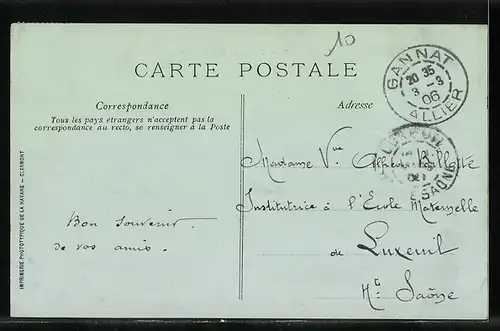 10
CARTE POSTALE
Correspondance
Tous les pays étrangers n'acceptent pas la
correspondance au recto, se renseigner à la Poste
Adresse
GANNAT
20 35
3 - 3
06
ALLIER
Madame Vve
Institutrice à l'École Maternelle
de Luxeuil
Hte Saône
Bon souvenir
de vos amis.
IMPRIMERIE PHOTOTYPIQUE DE LA HAVANE — CLERMONT